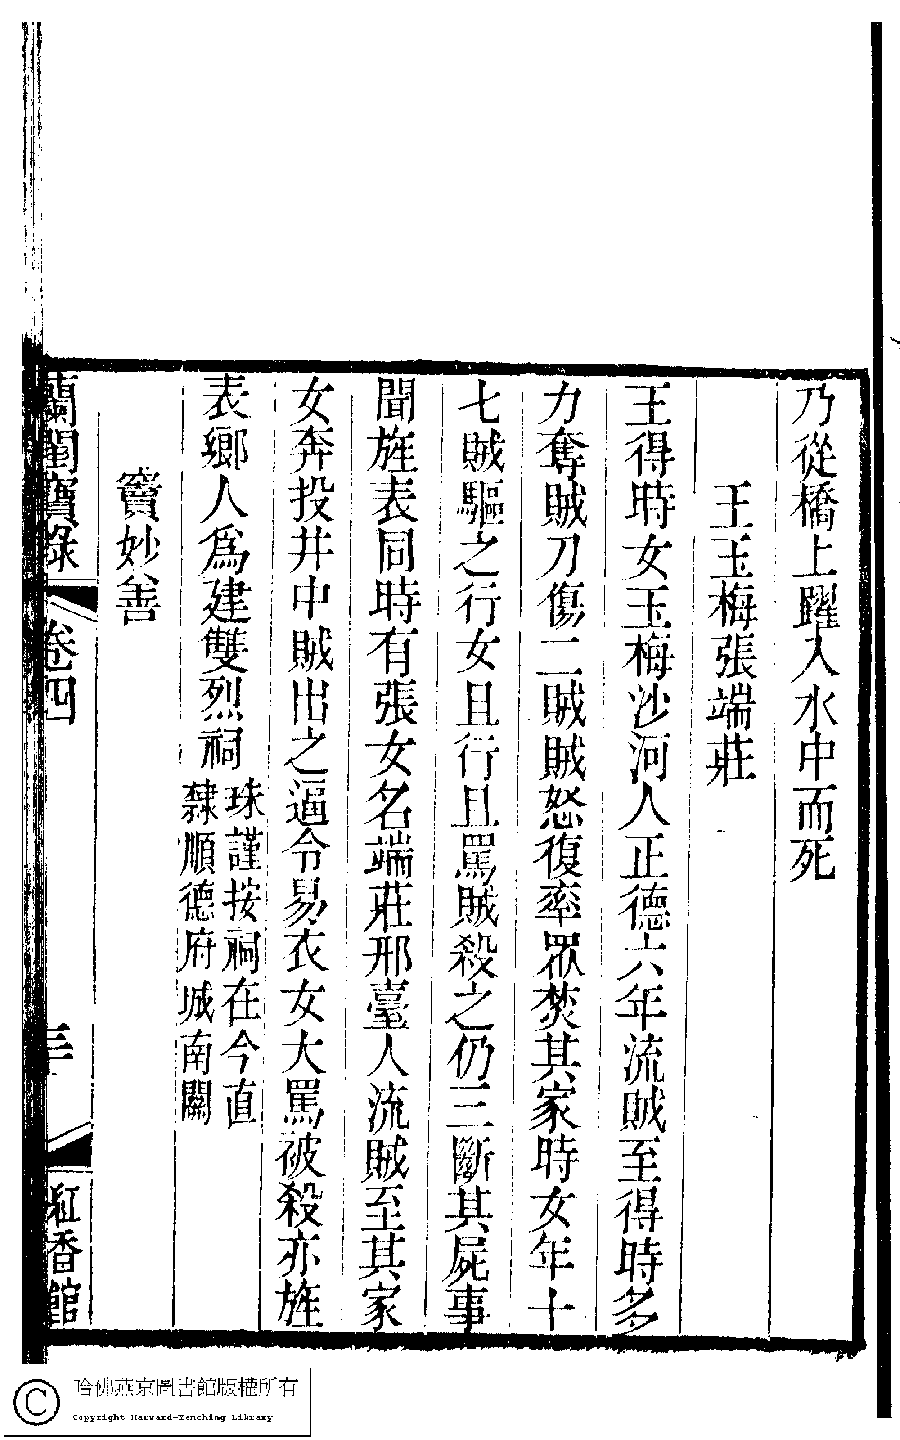 乃從橋上躍入水中而死
王玉梅張端莊
王得時女玉梅沙河人正德六年流賊至得時多
力奪賊刀傷二賊賊怒復率眾焚其家時女年十
七賊驅之行女且行且罵賊殺之仍三斷其屍事
聞旌表同時有張女名端莊邢臺人流賊至其家
女奔投井中賊出之逼令易衣女大罵被殺亦旌
表鄉人為建雙烈祠
珠謹按祠在今直
隸順德府城南關
竇妙善
蘭閨寶錄
卷四
三十
紅香館
哈佛燕京圖書館版權所有
Copyright Harvard-Yenching Library